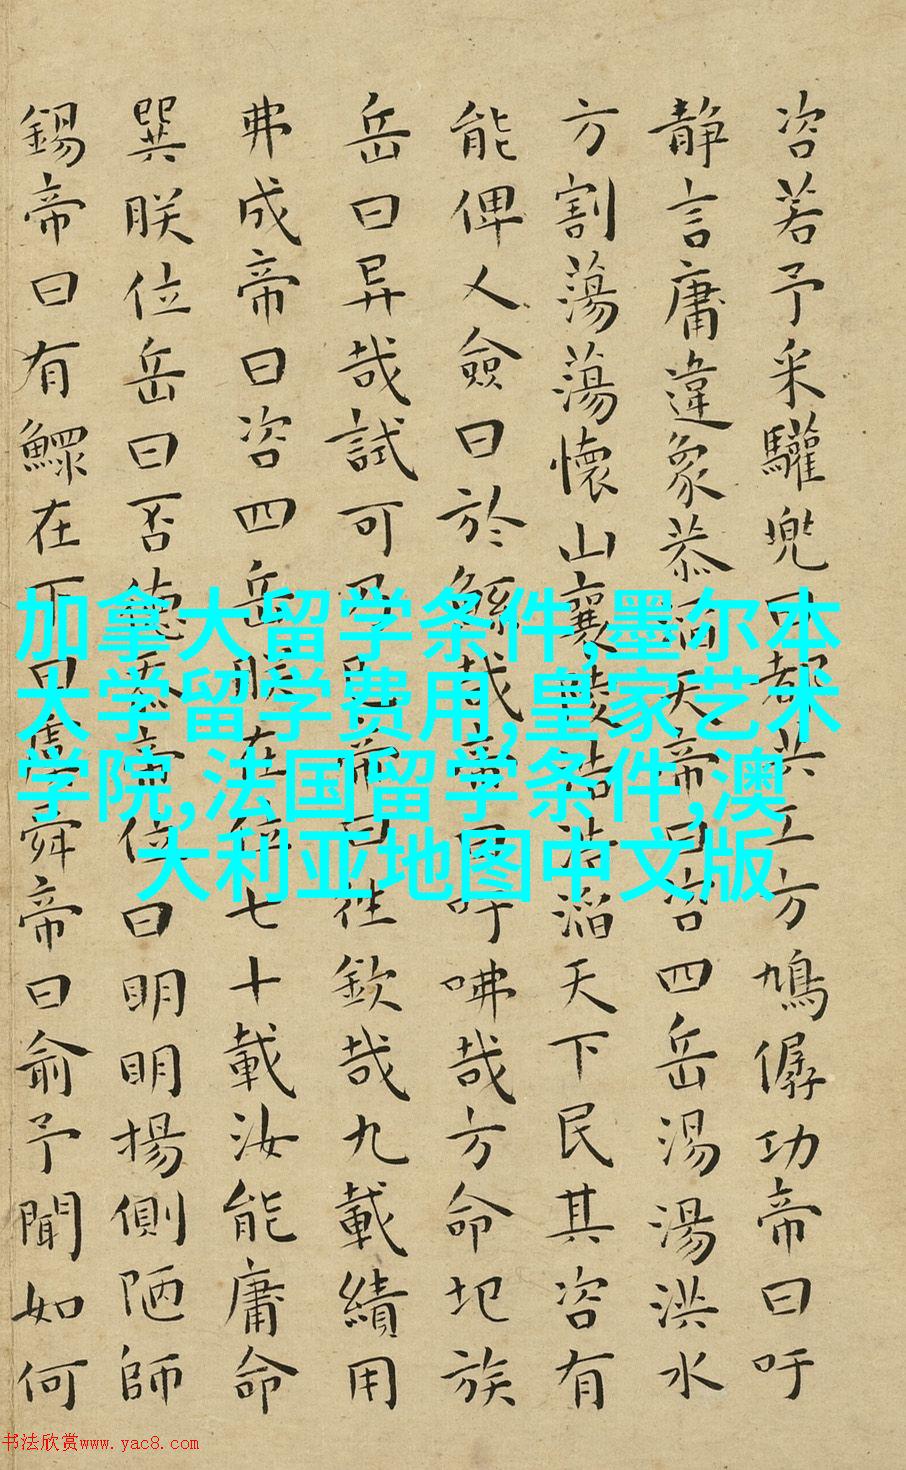 咨若予采驩兜曰都共工方鳩僝功帝曰吁
静言庸違象恭滔天帝曰咨四岳湯湯洪水
方割蕩蕩懷山襄陵浩浩滔天下民其咨有
能俾乂僉曰於鯀哉帝曰吁咈哉方命圮族
岳曰异哉試可乃已帝曰往欽哉九載績用
弗成帝曰咨四岳朕在位七十載汝能庸命
巽朕位岳曰否德忝帝位曰明明揚側陋師
錫帝曰有鰥在下曰虞舜帝曰俞予聞如何
加拿大留学条件,墨尔本
大学留学费用,皇家艺术
学院,法国留学条件,澳
大利亚地图中文版
书法欣赏www.yac8.com